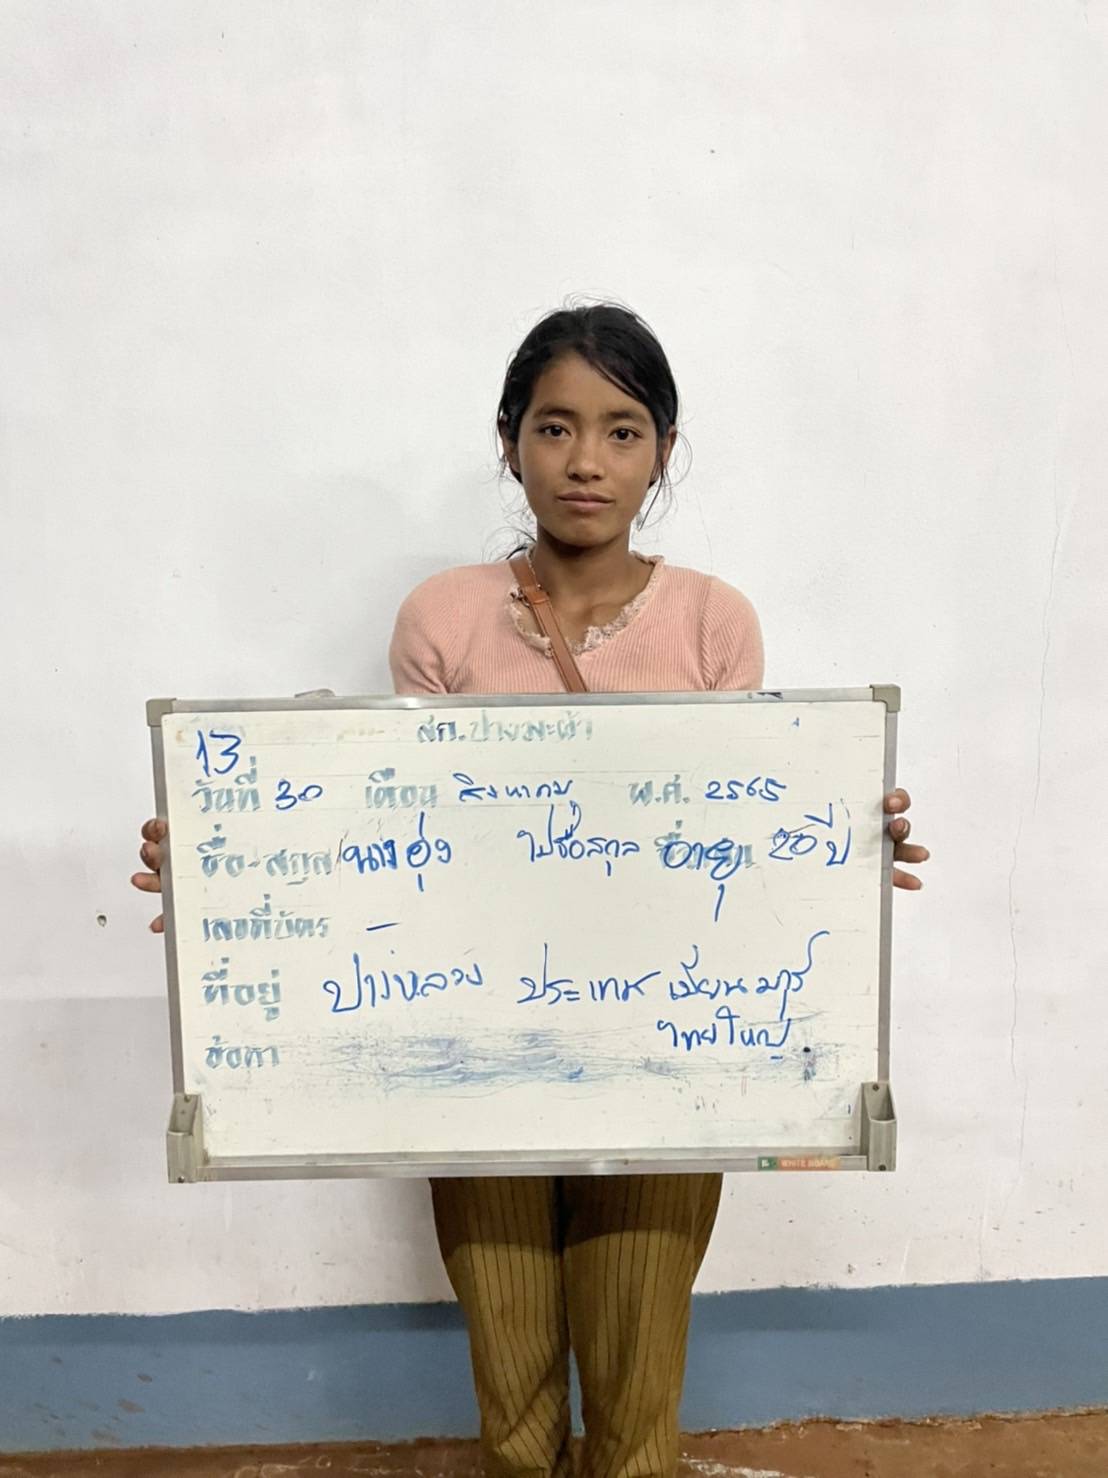 สภ.ปางมะผ้า
13
วันที่ 30 เดือน สิงหาคม พ.ศ. 2565
ชื่อ-สกุล นางฮุ่ง ไม่ชื่อสกุล อายุ 20 ปี
เลขที่บัตร -
ที่อยู่ ปางหลวง ประเทศ เมียนมาร์
ไทยใหญ่
ข้อหา
WHITE BOARD